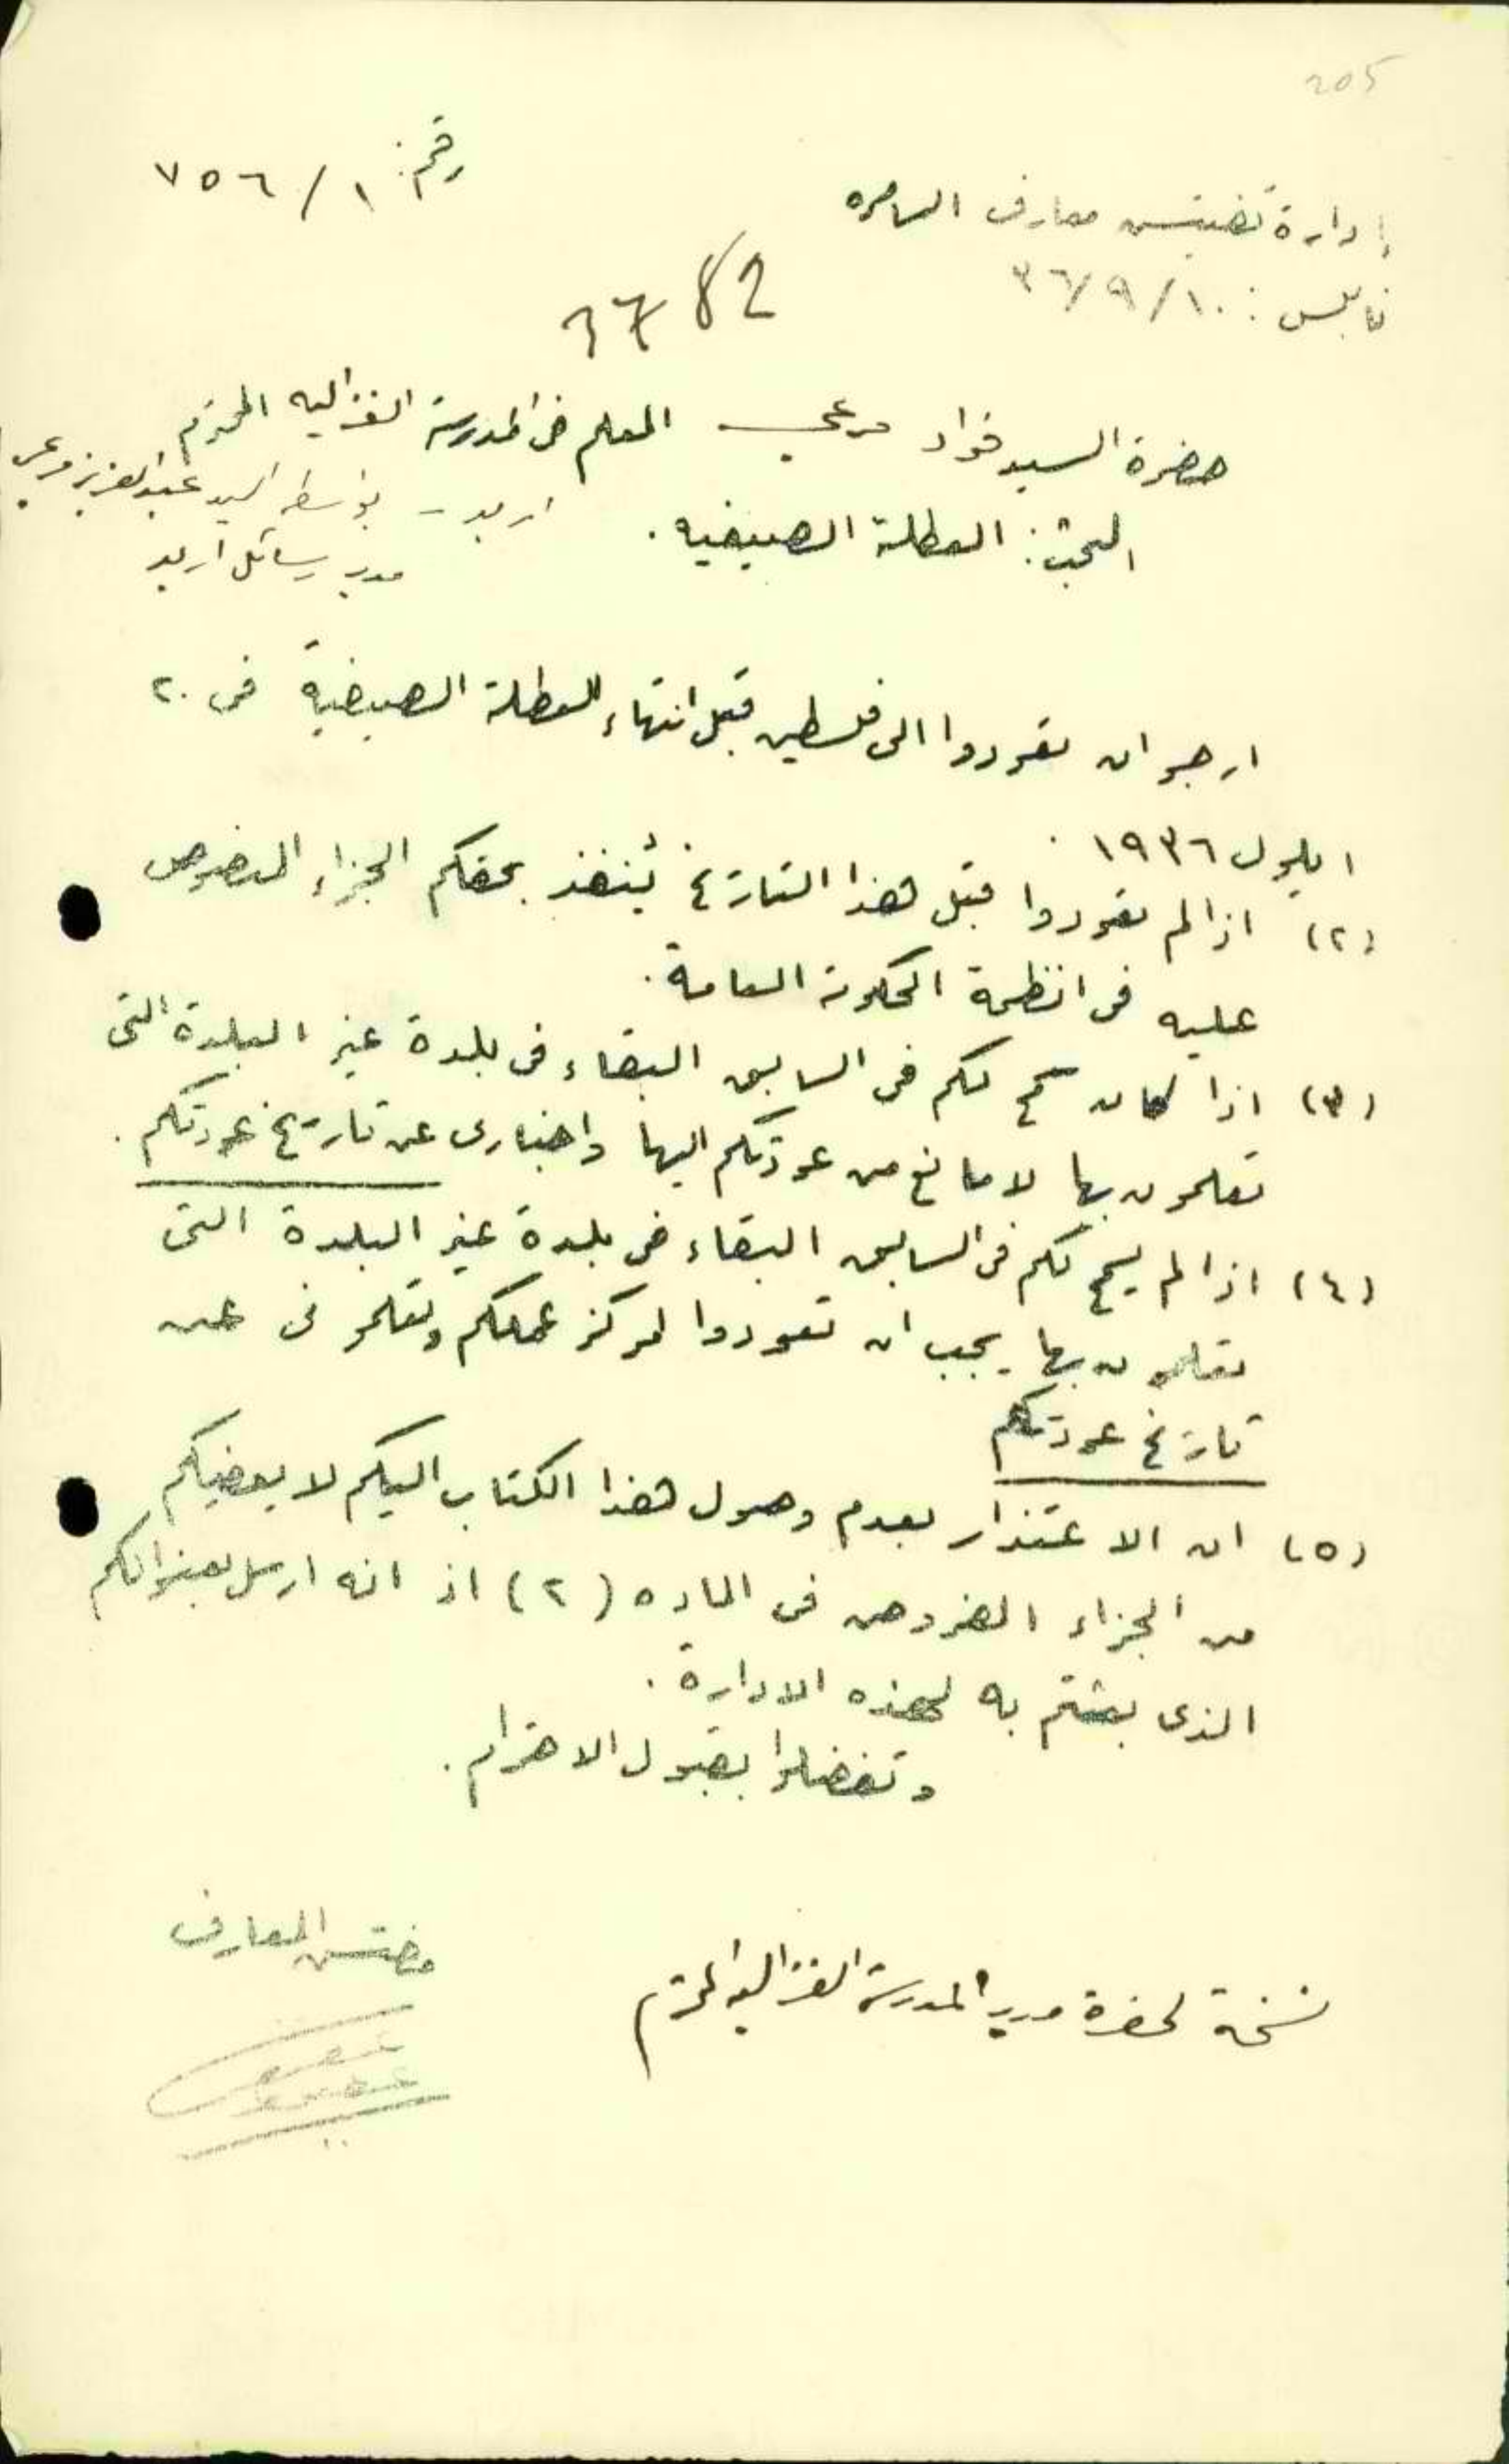 205
رقم: ١/٧٥٦
إدارة تفتيش معارف السامره
نابلس: ٣٦/٩/١٠
3782
حضرة السيد فؤاد مرعي المعلم في المدرسة الغزاليه المحترم
اربد - بواسطة السيد عبد العزيز مرعي
مدير رسائل اربد
البحث: العطلة الصيفيه.
ارجو ان تعودوا الى فلسطين قبل انتهاء العطلة الصيفية في ٢٠
ايلول ١٩٣٦.
(٢) اذا لم تعودوا قبل هذا التاريخ يُنفذ بحقكم الجزاء المنصوص
عليه في انظمة الحكومة العامة.
(٣) اذا كان سمح لكم في السابق البقاء في بلدة غير البلدة التي
تعلمون بها لا مانع من عودتكم اليها واخباري عن تاريخ عودتكم.
(٤) اذا لم يسمح لكم في السابق البقاء في بلدة غير البلدة التي
تعلمون بها يجب ان تعودوا لمركز عملكم وتعلموني عن
تاريخ عودتكم
(٥) ان الاعتذار بعدم وصول هذا الكتاب اليكم لا يعفيكم
من الجزاء المفروض في الماده (٢) اذ انه ارسل بعنوانكم
الذي بعثتم به لهذه الادارة.
وتفضلوا بقبول الاحترام.
مفتش المعارف
نسخة لحضرة مدير المدرسة الغزاليه المحترم